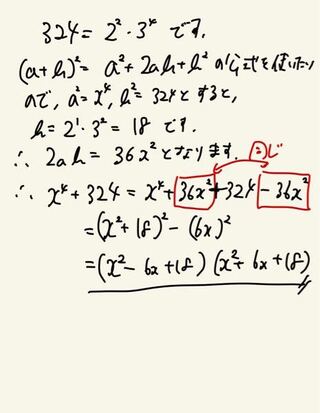 324 = 2²・3⁴ です。
(a+b)² = a² + 2ab + b² の公式を使いたい
ので、a² = x⁴, b² = 324 とすると、
b = 2¹・3² = 18 です。
∴ 2ab = 36x² となります。 同じ
∴ x⁴ + 324 = x⁴ + 36x² + 324 − 36x²
= (x² + 18)² − (6x)²
= (x² − 6x + 18) (x² + 6x + 18)